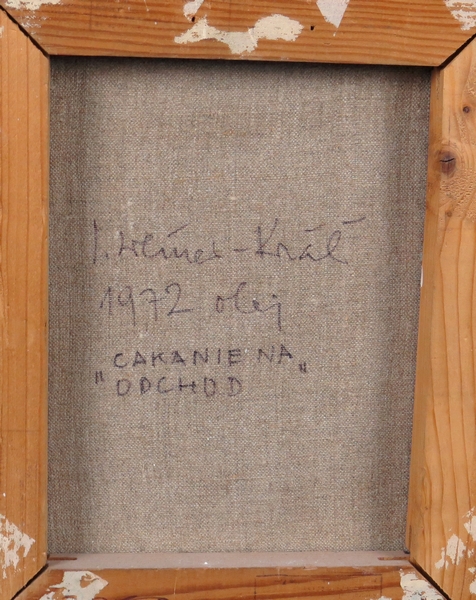 J. Weiner-Kráľ
1972 olej
"CAKANIE NA"
ODCHOD